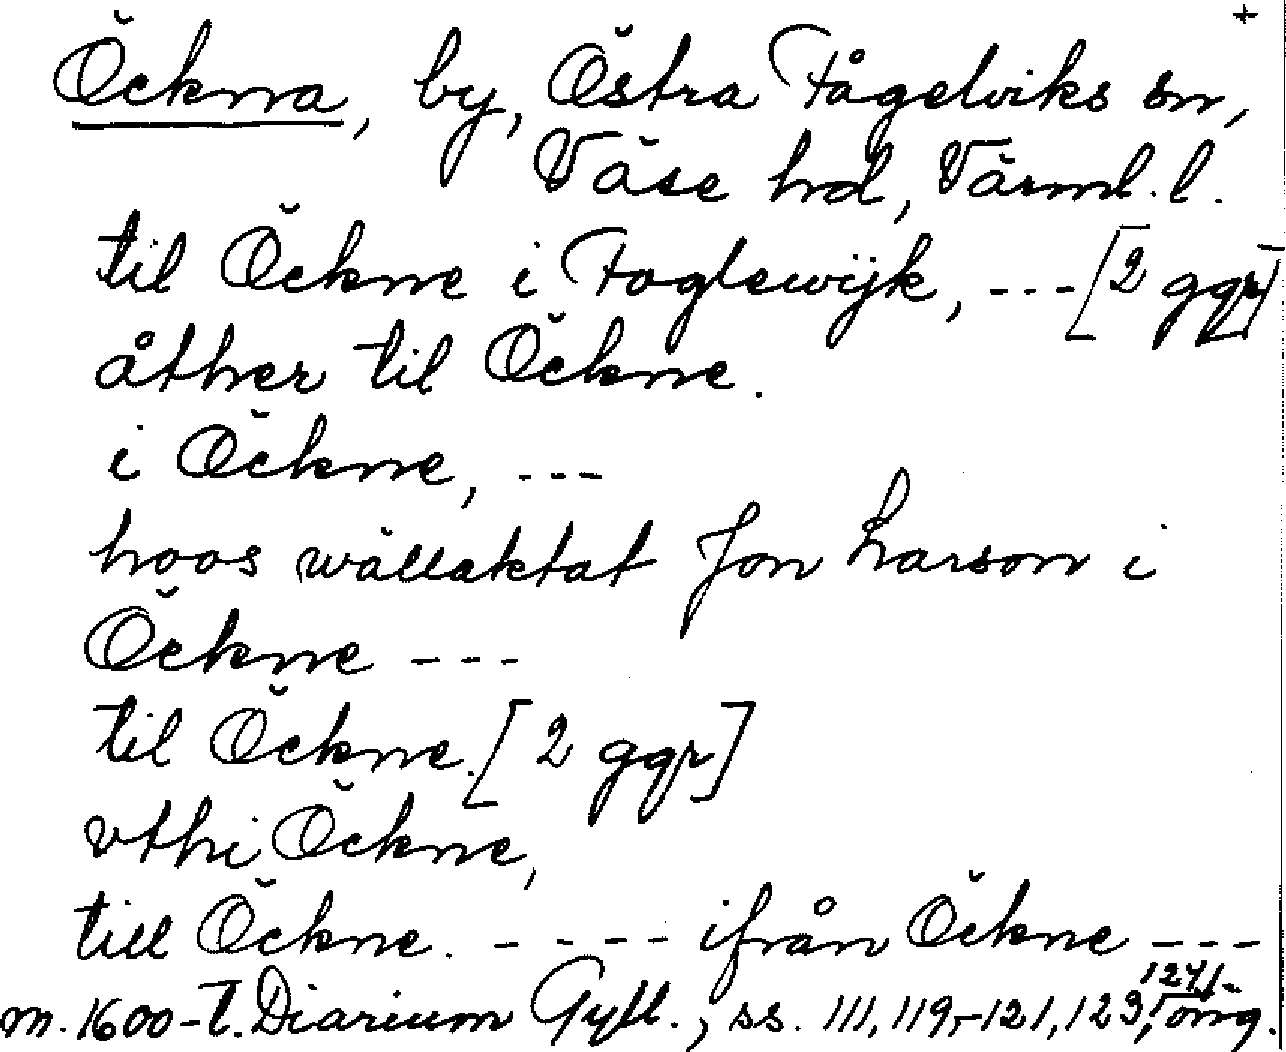 +
Öckna, by, Östra Fågelviks sn,
Väse hd, Värml. l.
til Öckne i Foglewijk, --- [2 ggr]
åther til Öckne.
i Öckne, ---
hoos wällaktat Jon Larson i
Öckne ---
til Öckne. [2 ggr]
vthi Öckne,
till Öckne. ---- ifrån Öckne ---
m. 1600-t. Diarium Gyll., ss. 111, 119,-121, 123, 124,